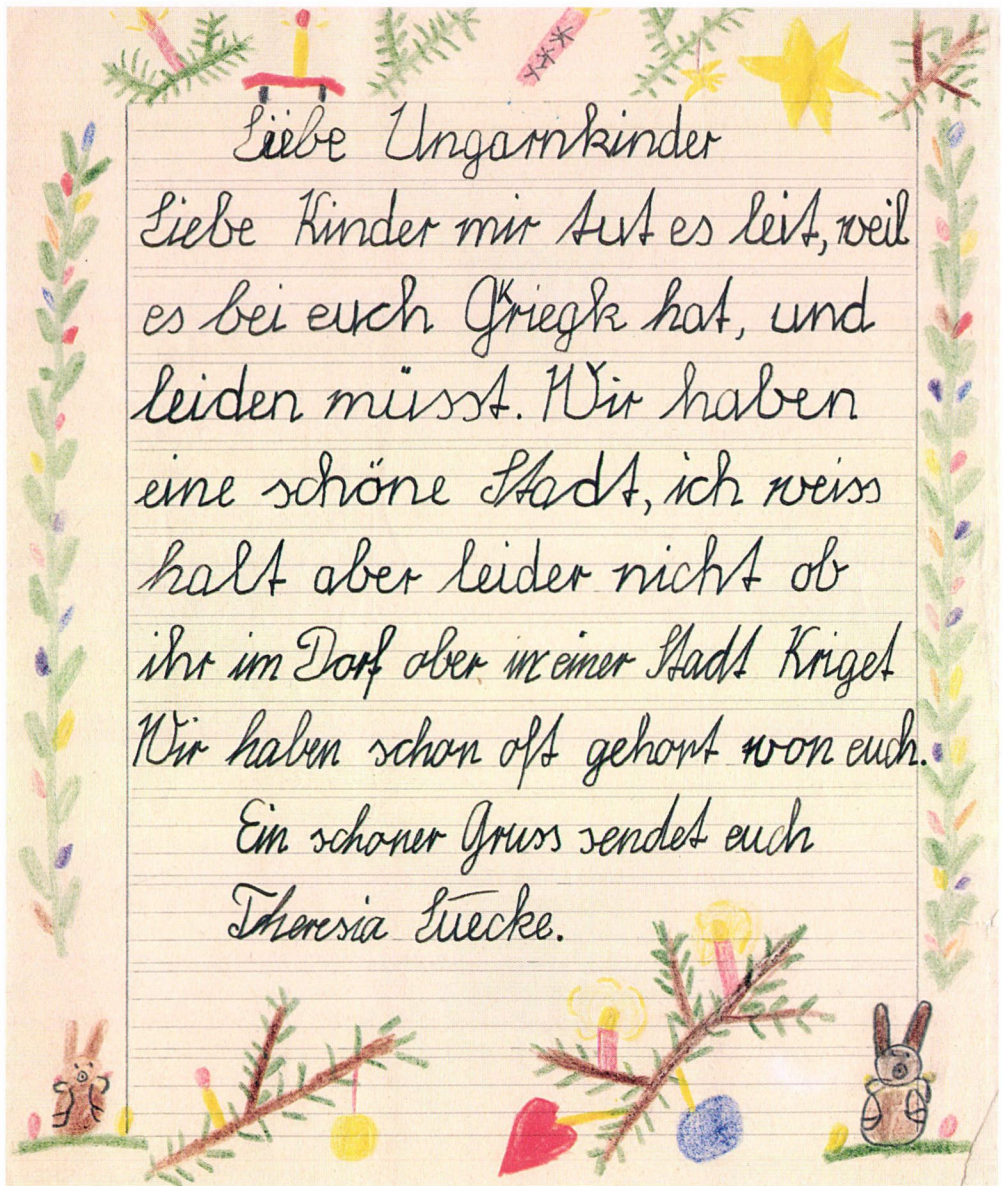 Liebe Ungarnkinder
Liebe Kinder mir tut es leit, weil
es bei euch Griegk hat, und
leiden müsst. Wir haben
eine schöne Stadt, ich weiss
halt aber leider nicht ob
ihr im Dorf ober in einer Stadt Kriget
Wir haben schon oft gehort von euch.
Ein schoner Gruss sendet euch
Theresia Luecke.